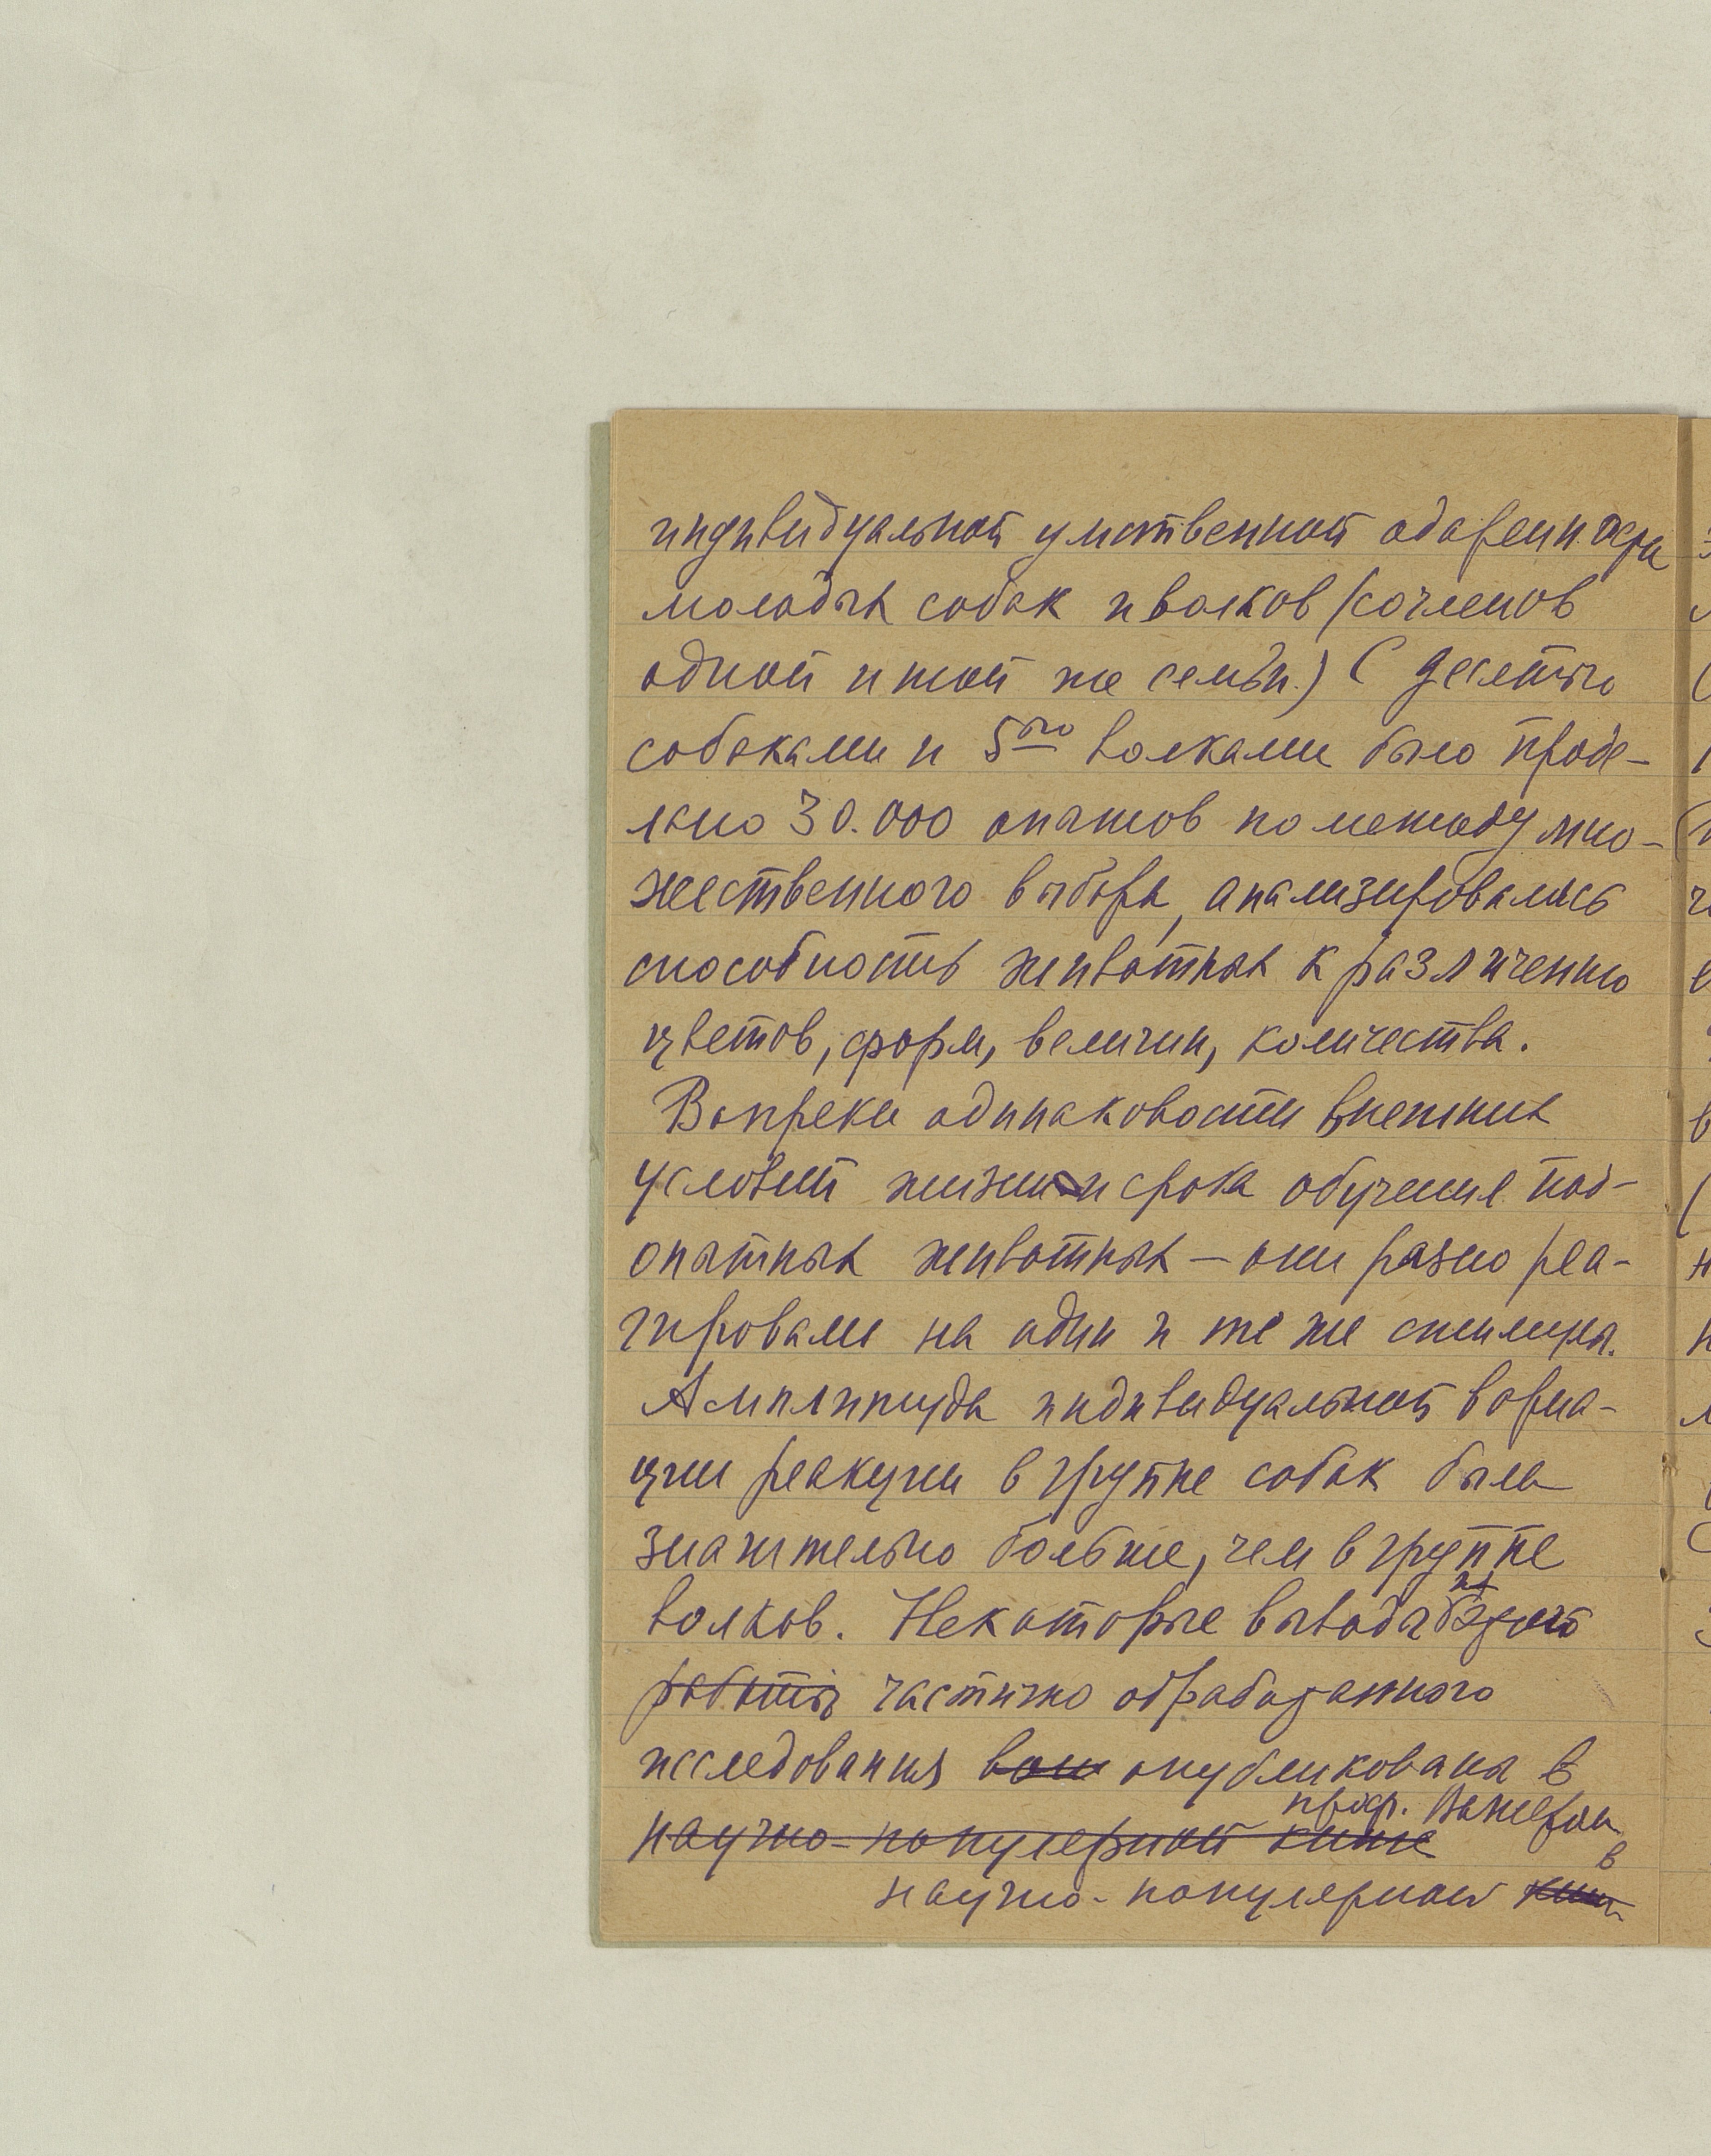 индивидуальной умственной одаренности
молодых собак и волков (сочленов
одной и той же семьи.) С десятью
собаками и 5ью волками было проде-
лано 30.000 опытов по методу мно-
жественного выбора, анализировалась
способность животных к различению
цветов, форм, величин, количества.
Вопреки одинаковости внешних
условий жизни и срока обучения под-
опытных животных — они разно реа-
гировали на одни и те же стимулы.
Амплитуда индивидуальной вариа-
ции реакции в группе собак была
значительно больше, чем в группе
волков. Некоторые выводы из
работы частично обработанного
исследования опубликованы в
проф. Вагнером
научно-популярной книге
в
научно-популярной